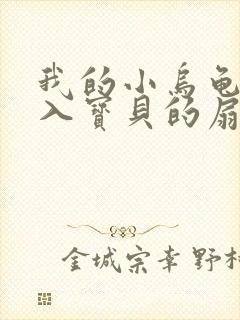 我的小烏龜
入寶貝的扇
金城宗幸野村